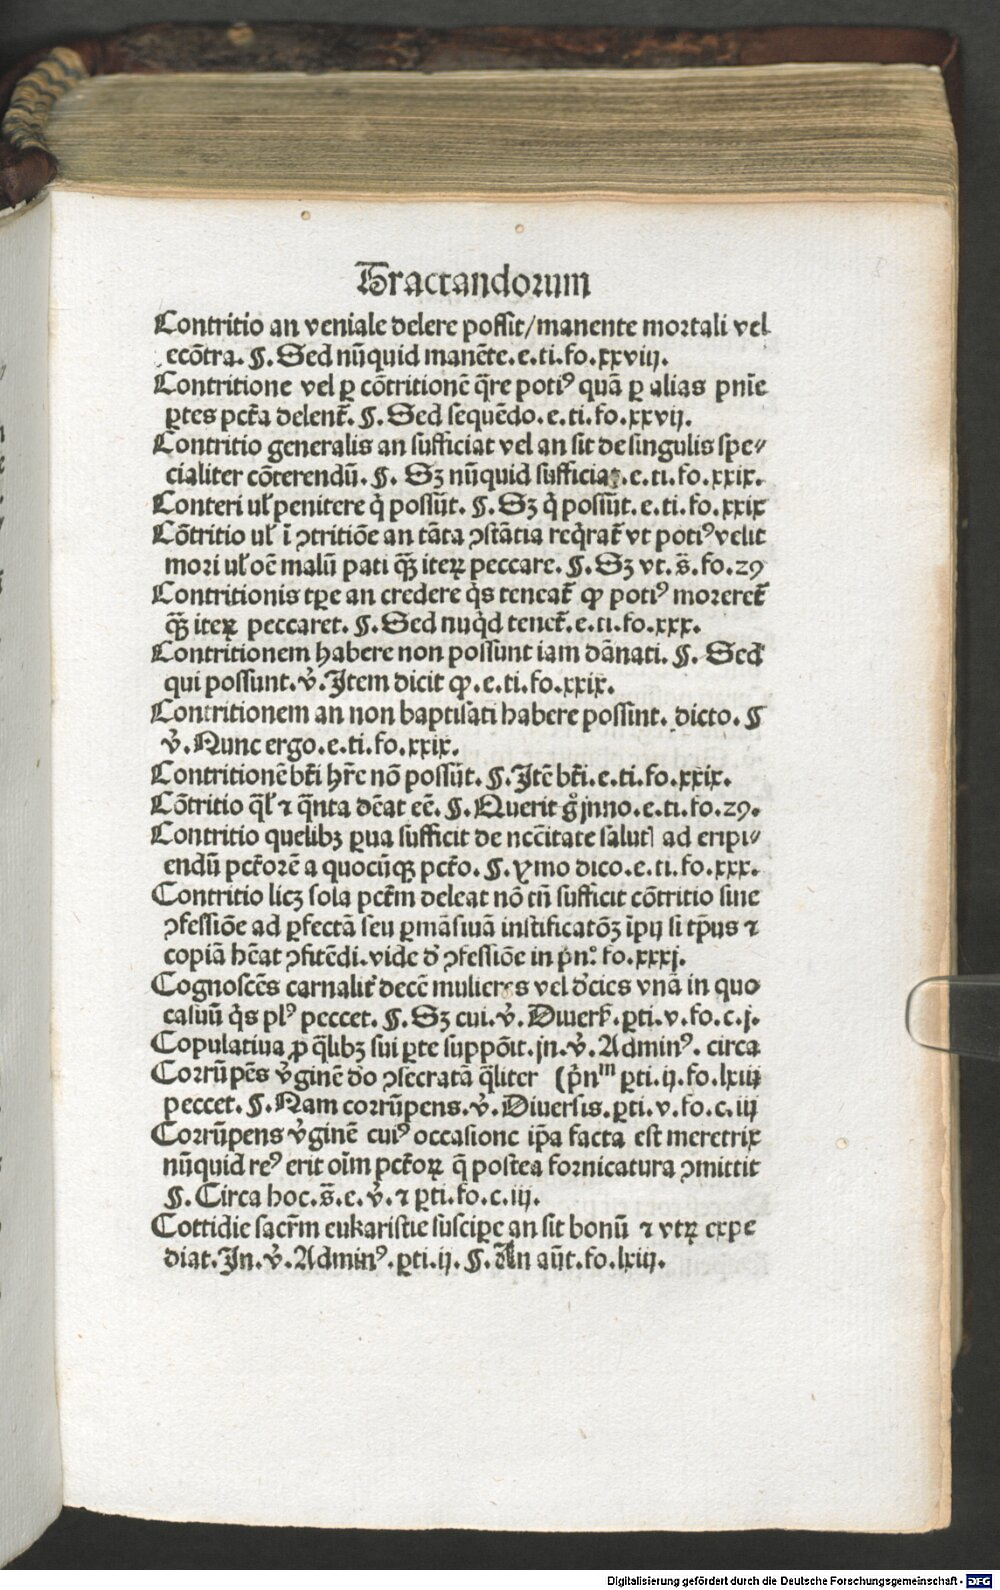 Tractandorum
Contritio an veniale delere possit/manente mortali vel
ecōtra. ¶. Sed nūquid manēte.e.ti.fo.xxviij.
Contritione vel ꝑ cōtritionē q̄re potiꝰ quā ꝑ alias pnīe
ꝑtes pctā delent̄. ¶. Sed sequēdo.e.ti.fo.xxvij.
Contritio generalis an sufficiat vel an sit de singulis spe⸗
cialiter cōterendū. ¶. Sꝫ nūquid sufficiat.e.ti.fo.xxix.
Conteri ul̓ penitere q̇ possūt. ¶. Sꝫ q̇ possūt.e.ti.fo.xxix
Cōtritio ul̓ ī ꝯtritiōe an tāta ꝯstātia req̇rat̄ vt potiꝰ velit
mori ul̓ oē malū pati qꝫ̄ iteꝝ peccare. ¶. Sꝫ vt.s̄.fo.29
Contritionis tꝑe an credere q̇s teneat̄ ꝙ potiꝰ moreret̄
qꝫ̄ iteꝝ peccaret. ¶. Sed nuq̇d tenet̄.e.ti.fo.xxx.
Contritionem habere non possunt iam dānati. ¶. Sed
qui possunt.v̇.Item dicit ꝙ.e.ti.fo.xxix.
Contritionem an non baptisati habere possint. dicto. ¶
v̇.Nunc ergo.e.ti.fo.xxix.
Contritionē btī hr̄e nō possūt. ¶.Itē btī.e.ti.fo.xxix.
Cōtritio q̄l̓ ⁊ q̄nta dēat eē. ¶.Querit gͦ jnno.e.ti.fo.29.
Contritio quelibꝫ ꝑua sufficit de nccītate salutꝭ ad eripi⸗
endū pctōrē a quocūqꝫ pctō. ¶.ymo dico.e.ti.fo.xxx.
Contritio licꝫ sola pctm̄ deleat nō tn̄ sufficit cōtritio sine
ꝯfessiōe ad ꝑfectā seu ꝑmāsiuā iustificatōꝫ ip̄ij si tp̄us ⁊
copiā hēat ꝯfitēdi.vide d̓ ꝯfessiōe in prīn. fo.xxxj.
Cognoscēs carnalit̓ decē mulieres vel d̓cies vnā in quo
casuū q̇s plꝰ peccet. ¶.Sꝫ cui.v̇.Diuers̓.ꝑti.v.fo.c.j.
Copulatiua ꝓ q̄libꝫ sui ꝑte suppōit.jn.v̇.Adminꝰ. circa
Corrūpēs v̓ginē d̓o ꝯsecratā q̄liter (prīnᵐ ꝑti.ij.fo.lxiij
peccet. ¶.Nam corrūpens.v̇.Diuersis.ꝑti.v.fo.c.iij
Corrūpens v̓ginē cuiꝰ occasione ip̄a facta est meretrix
nūquid reꝰ erit oīm pctōꝝ q̄ postea fornicatura ꝯmittit
¶.Circa hoc.s̄.e.v̇.⁊ ꝑti.fo.c.iij.
Cottidie sacr̄m eukaristie suscipe an sit bonū ⁊ vtꝝ expe
diat.In.v̇.Adminꝰ.ꝑti.ij.¶.An aūt.fo.lxiij.
Digitalisierung gefördert durch die Deutsche Forschungsgemeinschaft - DFG